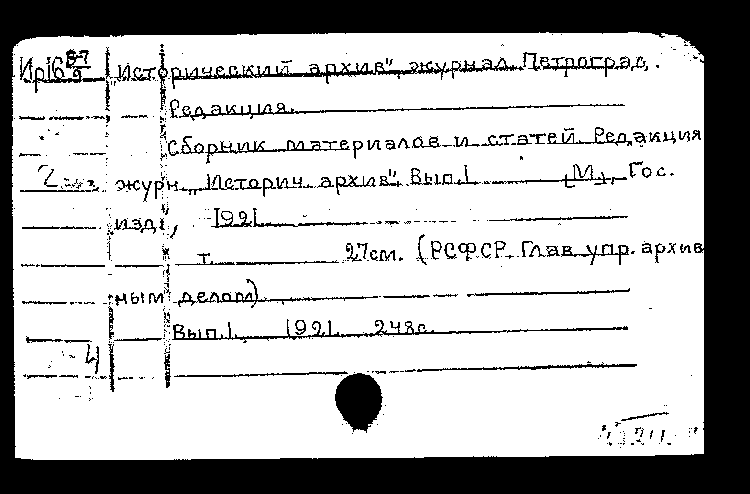 Ир16 8-7/9 „Исторический архив", журнал. Петроград.
Редакция.
Сборник материалов и статей. Редакция
2 экз. журн. „Историч. архив". Вып. 1 [М.], Гос.
изд., 1921
т. 27см. (РСФСР. Глав. упр. архив
ным делом)
Вып. 1. 1921. 248с.
4